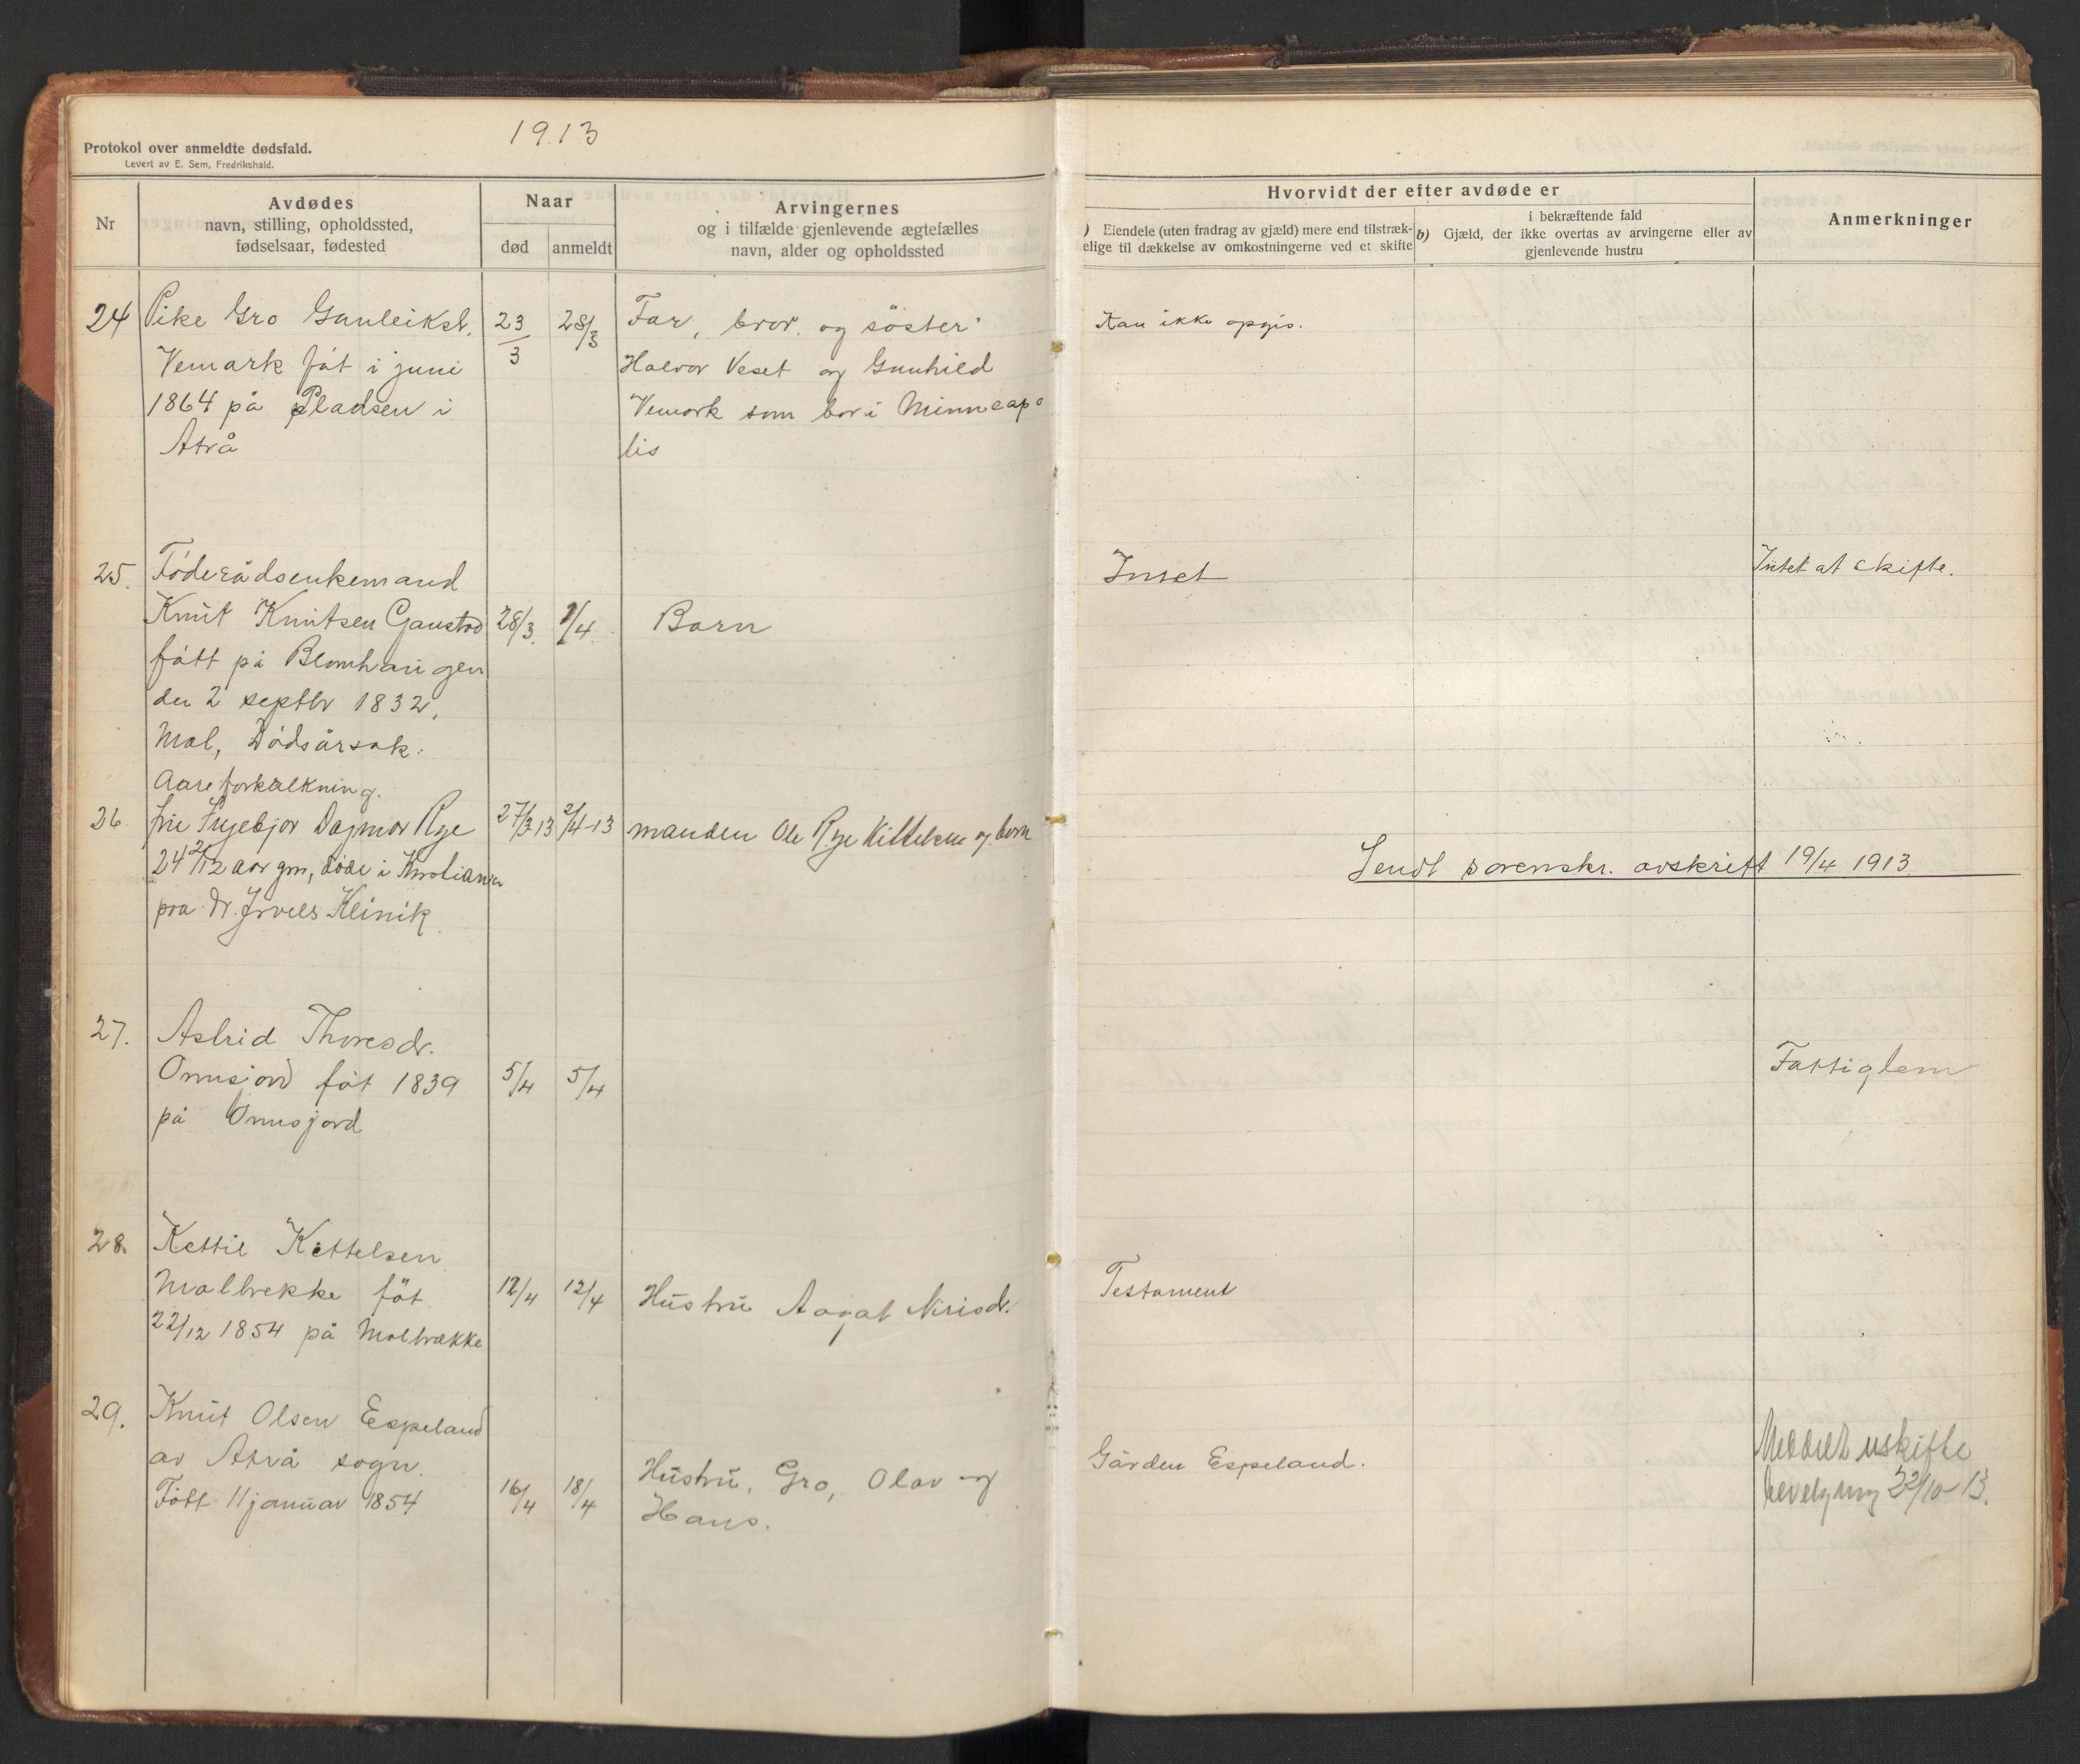 1913
Protokol over anmeldte dødsfald.
Levert av E. Sem, Fredrikshald.
Nr
Avdødes
navn, stilling, opholdssted,
fødselsaar, fødested
Naar
død
anmeldt
Arvingernes
og i tilfælde gjenlevende ægtefælles
navn, alder og opholdssted
Hvorvidt der efter avdøde er
) Eiendele (uten fradrag av gjæld) mere end tilstræk-
elige til dækkelse av omkostningerne ved et skifte
i bekræftende fald
b) Gjæld, der ikke overtas av arvingerne eller av
gjenlevende hustru
Anmerkninger
24 Pike Gro Gunleiksd. 23/3 28/3 Far, bror og söster
Kan ikke opgis.
Vemark föt i juni Halvor Veset og Gunhild
1864 på Pladsen i Vemork som bor i Minneapo
Atrå lis
25. Föderådsenkemand
Intet Intet at skifte.
Knut Knutsen Gaustad 28/3. 1/4. Barn
fött på Blomhaugen
den 2 septbr 1832,
Mæl, Dödsårsak:
Aareforkalkning.
26 fru Ingebjor Dagmar Rye 27/3 13 2/4-13 manden Ole Rye Kittelsen og born
24 2/12 aar gm, döde i Kristiania
Sendt sorenskr. avskrift 19/4 1913
paa Dr. Klinik
27. Astrid Thoresdr.
Ormsjord föt 1839 5/4 5/4
Fattiglem
på Ormsjord
28. Kettil Kettelsen
Mølbrekke föt 12/4 12/4 Hustru Aagat Nirisd.
Testament
22/12 1854 på Mølbrække
29. Knut Olsen Espeland
av Atrå sogn.
Fött 11 januar 1854 16/4 18/4 Hustru, Gro, Olav og
Hans.
Gården Espeland.
Meddelt uskifte
bevilgning 22/10-13.